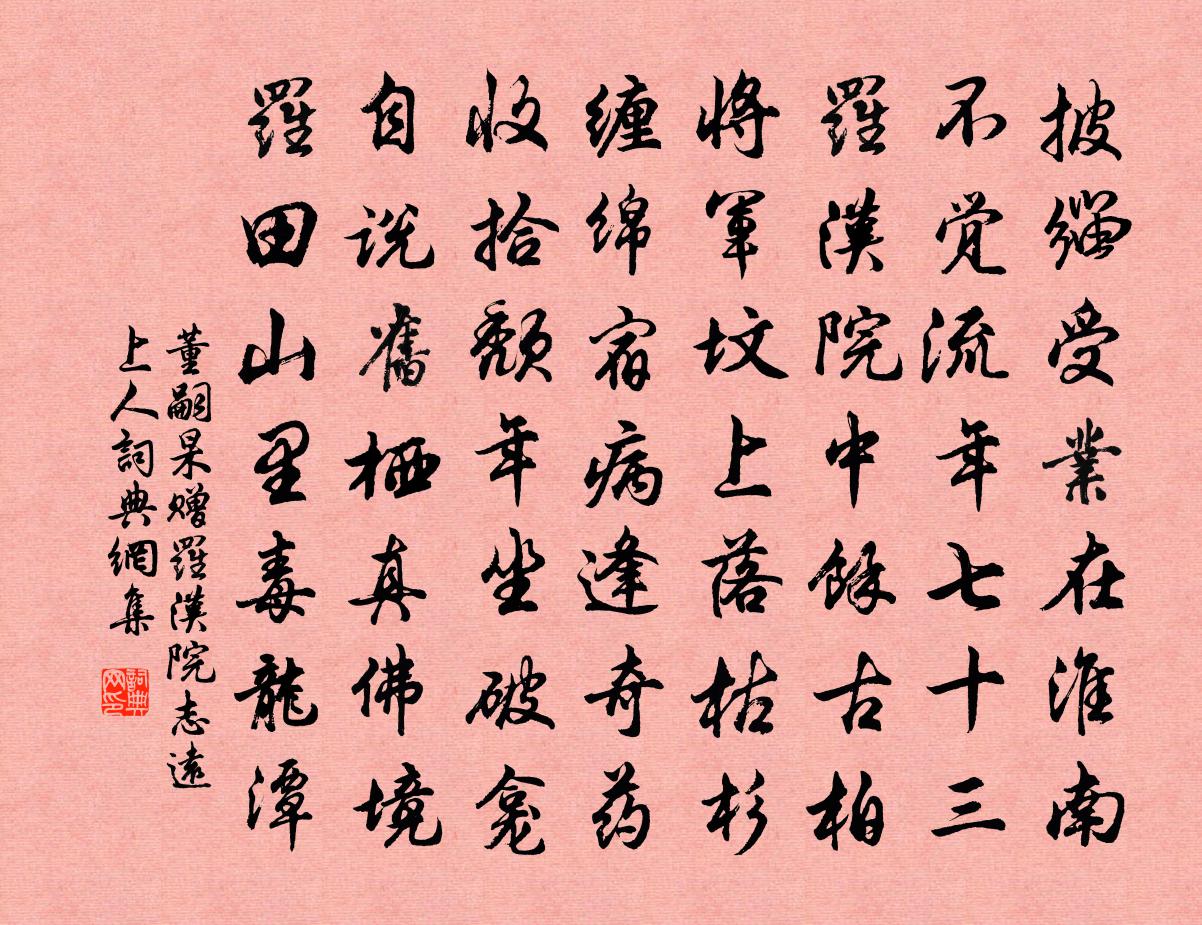 披缁受業在淮南
不觉流年七十三
羅漢院中餘古柏
將軍坟上落枯杉
缠绵宿病逢奇药
收拾颓年坐破龛
自说舊栖真佛境
羅田山里毒龍潭
董嗣杲赠羅漢院志遠
上人詞典網集
詞典
网印